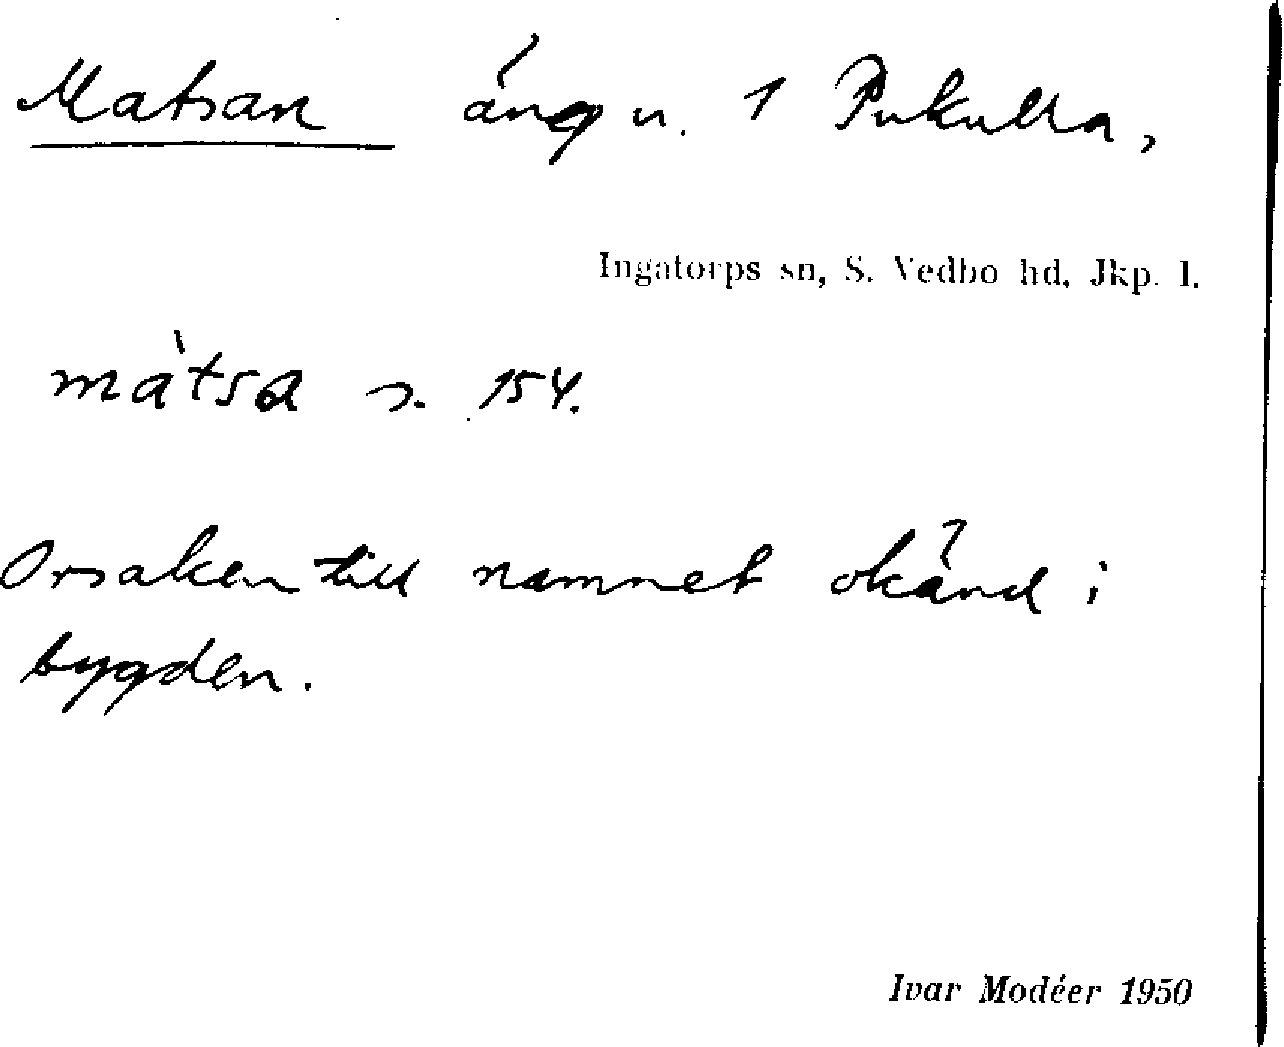 Matsan äng u. 1 Pukulla,
Ingatorps sn, S. Vedbo hd, Jkp. l.
màtsa s. 154.
Orsaken till namnet okänd i
bygden.
Ivar Modéer 1950